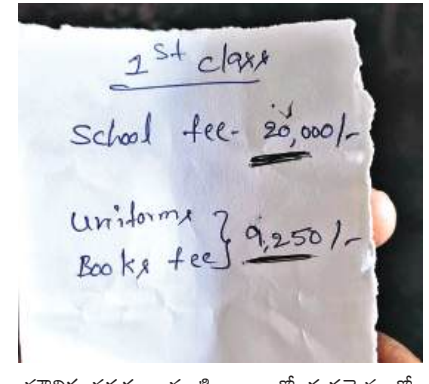 1st class
School fee- 20,000/-
Uniforms
Books fee } 9,250/-